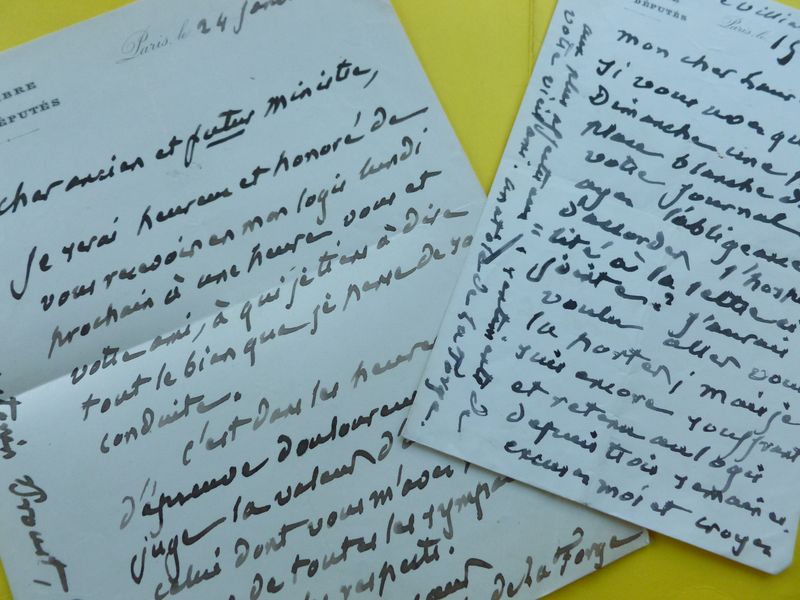 BRE
DÉPUTÉS
Paris, le 24 janv
cher ancien et futur ministre,
Je serai heureux et honoré de
vous recevoir en mon logis lundi
prochain à une heure vous et
votre ami, à qui je tiens à dire
tout le bien que je pense de sa
conduite.
C'est dans les heures
d'épreuve douloureu
juge la valeur d
celui dont vous m'avez
de toutes les sympa
respects.
de La Forge
Proust,
DÉPUTÉS
Paris, le 15
mon cher
Si vous voyez que
Dimanche une p
place blanche d
votre journal
ayez l'obligeance
d'accorder l'hospi
talité à la lettre ci
jointe? J'aurais
voulu aller vous
la porter; mais je
suis encore souffrant
et retenu au logis
depuis trois semaines.
excusez moi et croyez
aux plus affectueux sentiments de
votre vieil ami Anatole de La Forge.